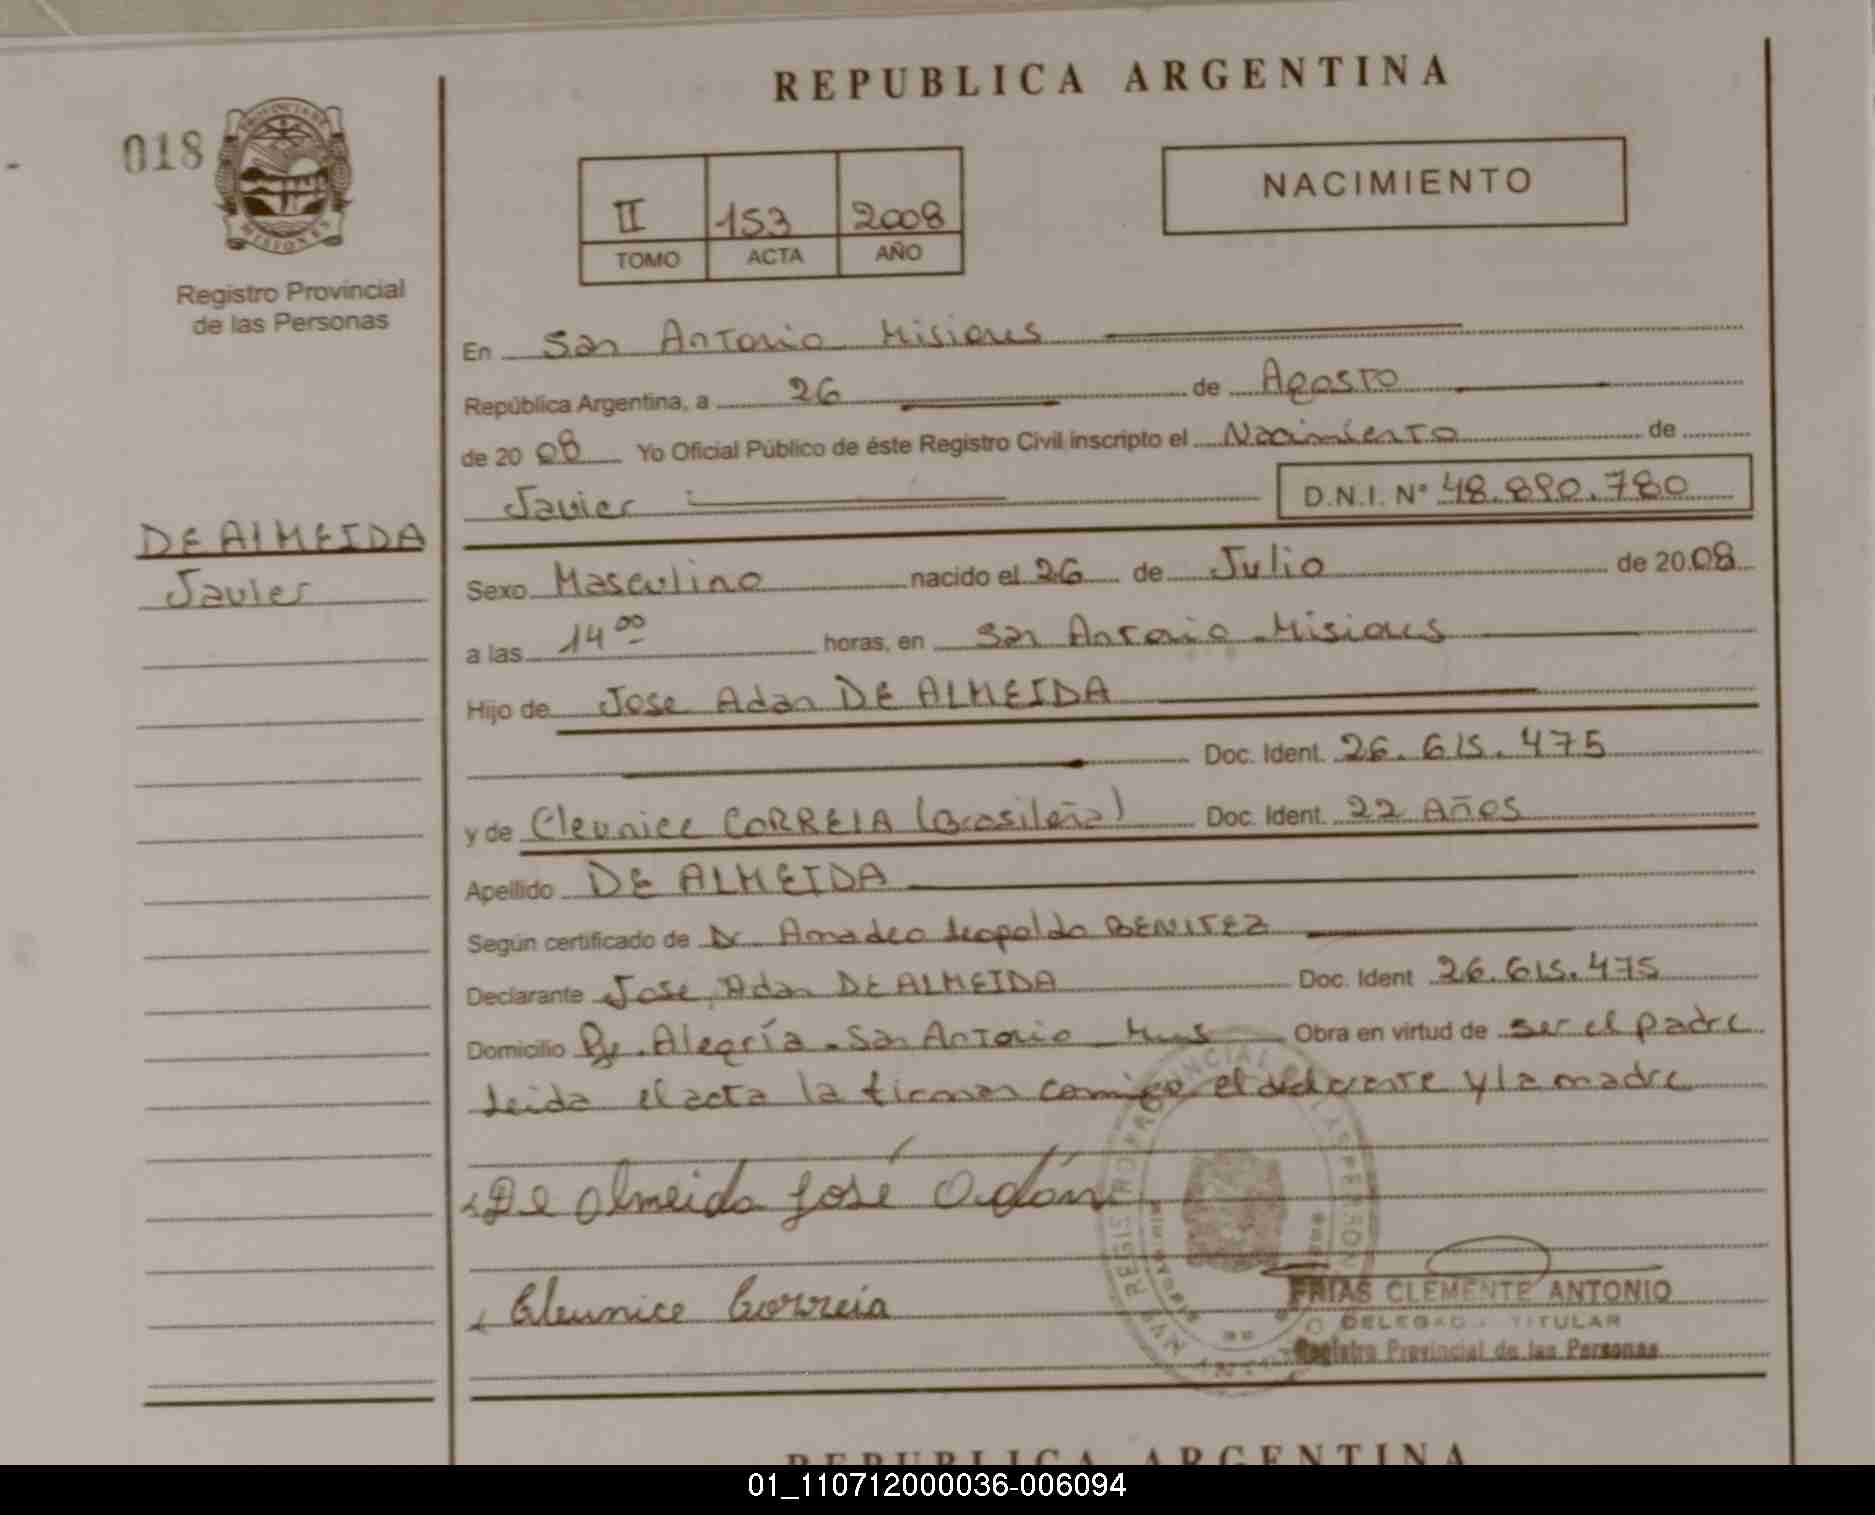 REPUBLICA ARGENTINA
018
PROVINCIA DE
MISIONES
Registro Provincial
de las Personas
II 153 2008
TOMO ACTA AÑO
NACIMIENTO
En San Antonio Misiones
República Argentina, a 26 de Agosto
de 2008 Yo Oficial Público de éste Registro Civil inscripto el Nacimiento de
Javier D.N.I. N° 48.890.780
DE ALMEIDA
Javier
Sexo Masculino nacido el 26 de Julio de 2008
a las 14 00 horas, en San Antonio Misiones
Hijo de Jose Adan DE ALMEIDA
Doc. Ident. 26.615.475
y de Cleunice CORREIA (Brasileña) Doc. Ident. 22 Años
Apellido DE ALMEIDA
Según certificado de Dr. Amadeo Leopoldo BENITEZ
Declarante Jose Adan DE ALMEIDA Doc. Ident 26.615.475
Domicilio Alegría - San Antonio Obra en virtud de ser el padre
Leida el acta la firman conmigo el declarante y la madre
De Almeida José Adán
Cleunice Correia
FRIAS CLEMENTE ANTONIO
DELEGADO TITULAR
Registro Provincial de las Personas
REPUBLICA ARGENTINA
01_110712000036-006094